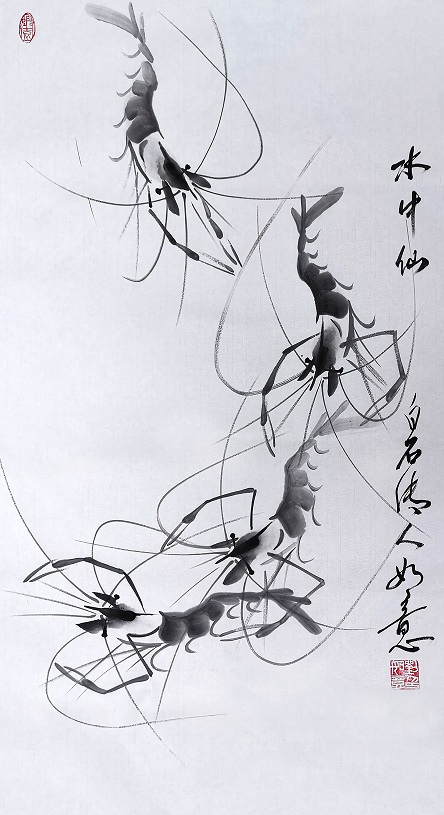 水中仙
白石傳人如意